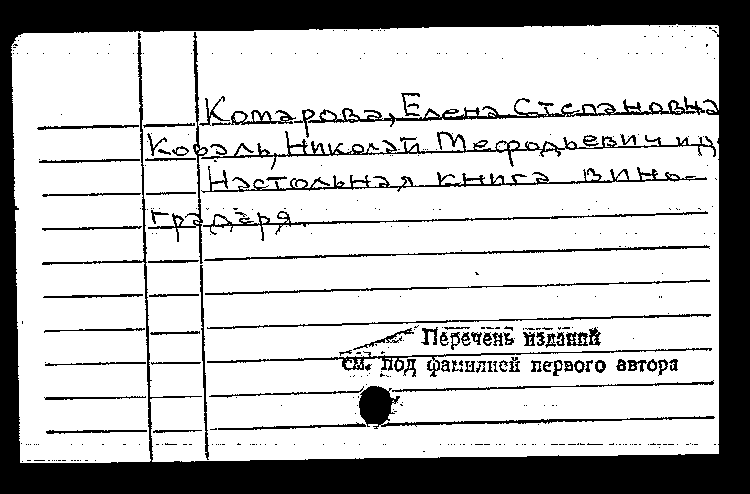 Комарова, Елена Степановна
Коваль, Николай Мефодьевич и др
Настольная книга вино-
градаря.
Перечень изданий
см. под фамилией первого автора